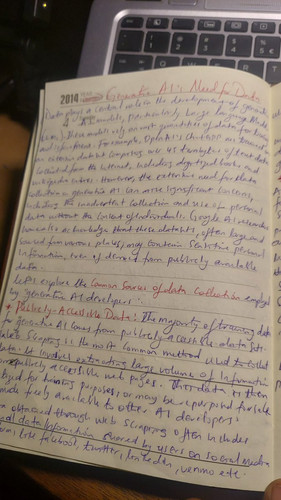 2014 Generative AI's Need for Data
Data plays a central role in the development of generative
AI models, particularly Large Language Models
(LLMs). These models rely on vast quantities of data for training
and refinement. For example, OpenAI's ChatGPT was trained
on extensive dataset comprising over 45 terabytes of text data
collected from the internet, including digitized books and
wikipedia entries. However, the extensive need for data
collection in generative AI can raise significant concerns,
including the inadvertent collection and use of personal
data without the consent of individuals. Google AI researchers
have also acknowledged that these datasets, often large and
sourced from various places, may contain sensitive personal
information, even if derived from publicly available
data.
Let's explore the common sources of data collection employed
by generative AI developers:
Publicly Accessible Data: The majority of training data
in generative AI comes from publicly accessible data
Scraping is the most common method used to collect
data. It involves extracting large volumes of information
from publicly accessible web pages. This data is then
for training purposes, or may be repurposed for sale
made freely available to other AI developers.
obtained through web scraping often includes
personal data information shared by users on Social Media
like facebook, twitter, LinkedIn, venmo etc.